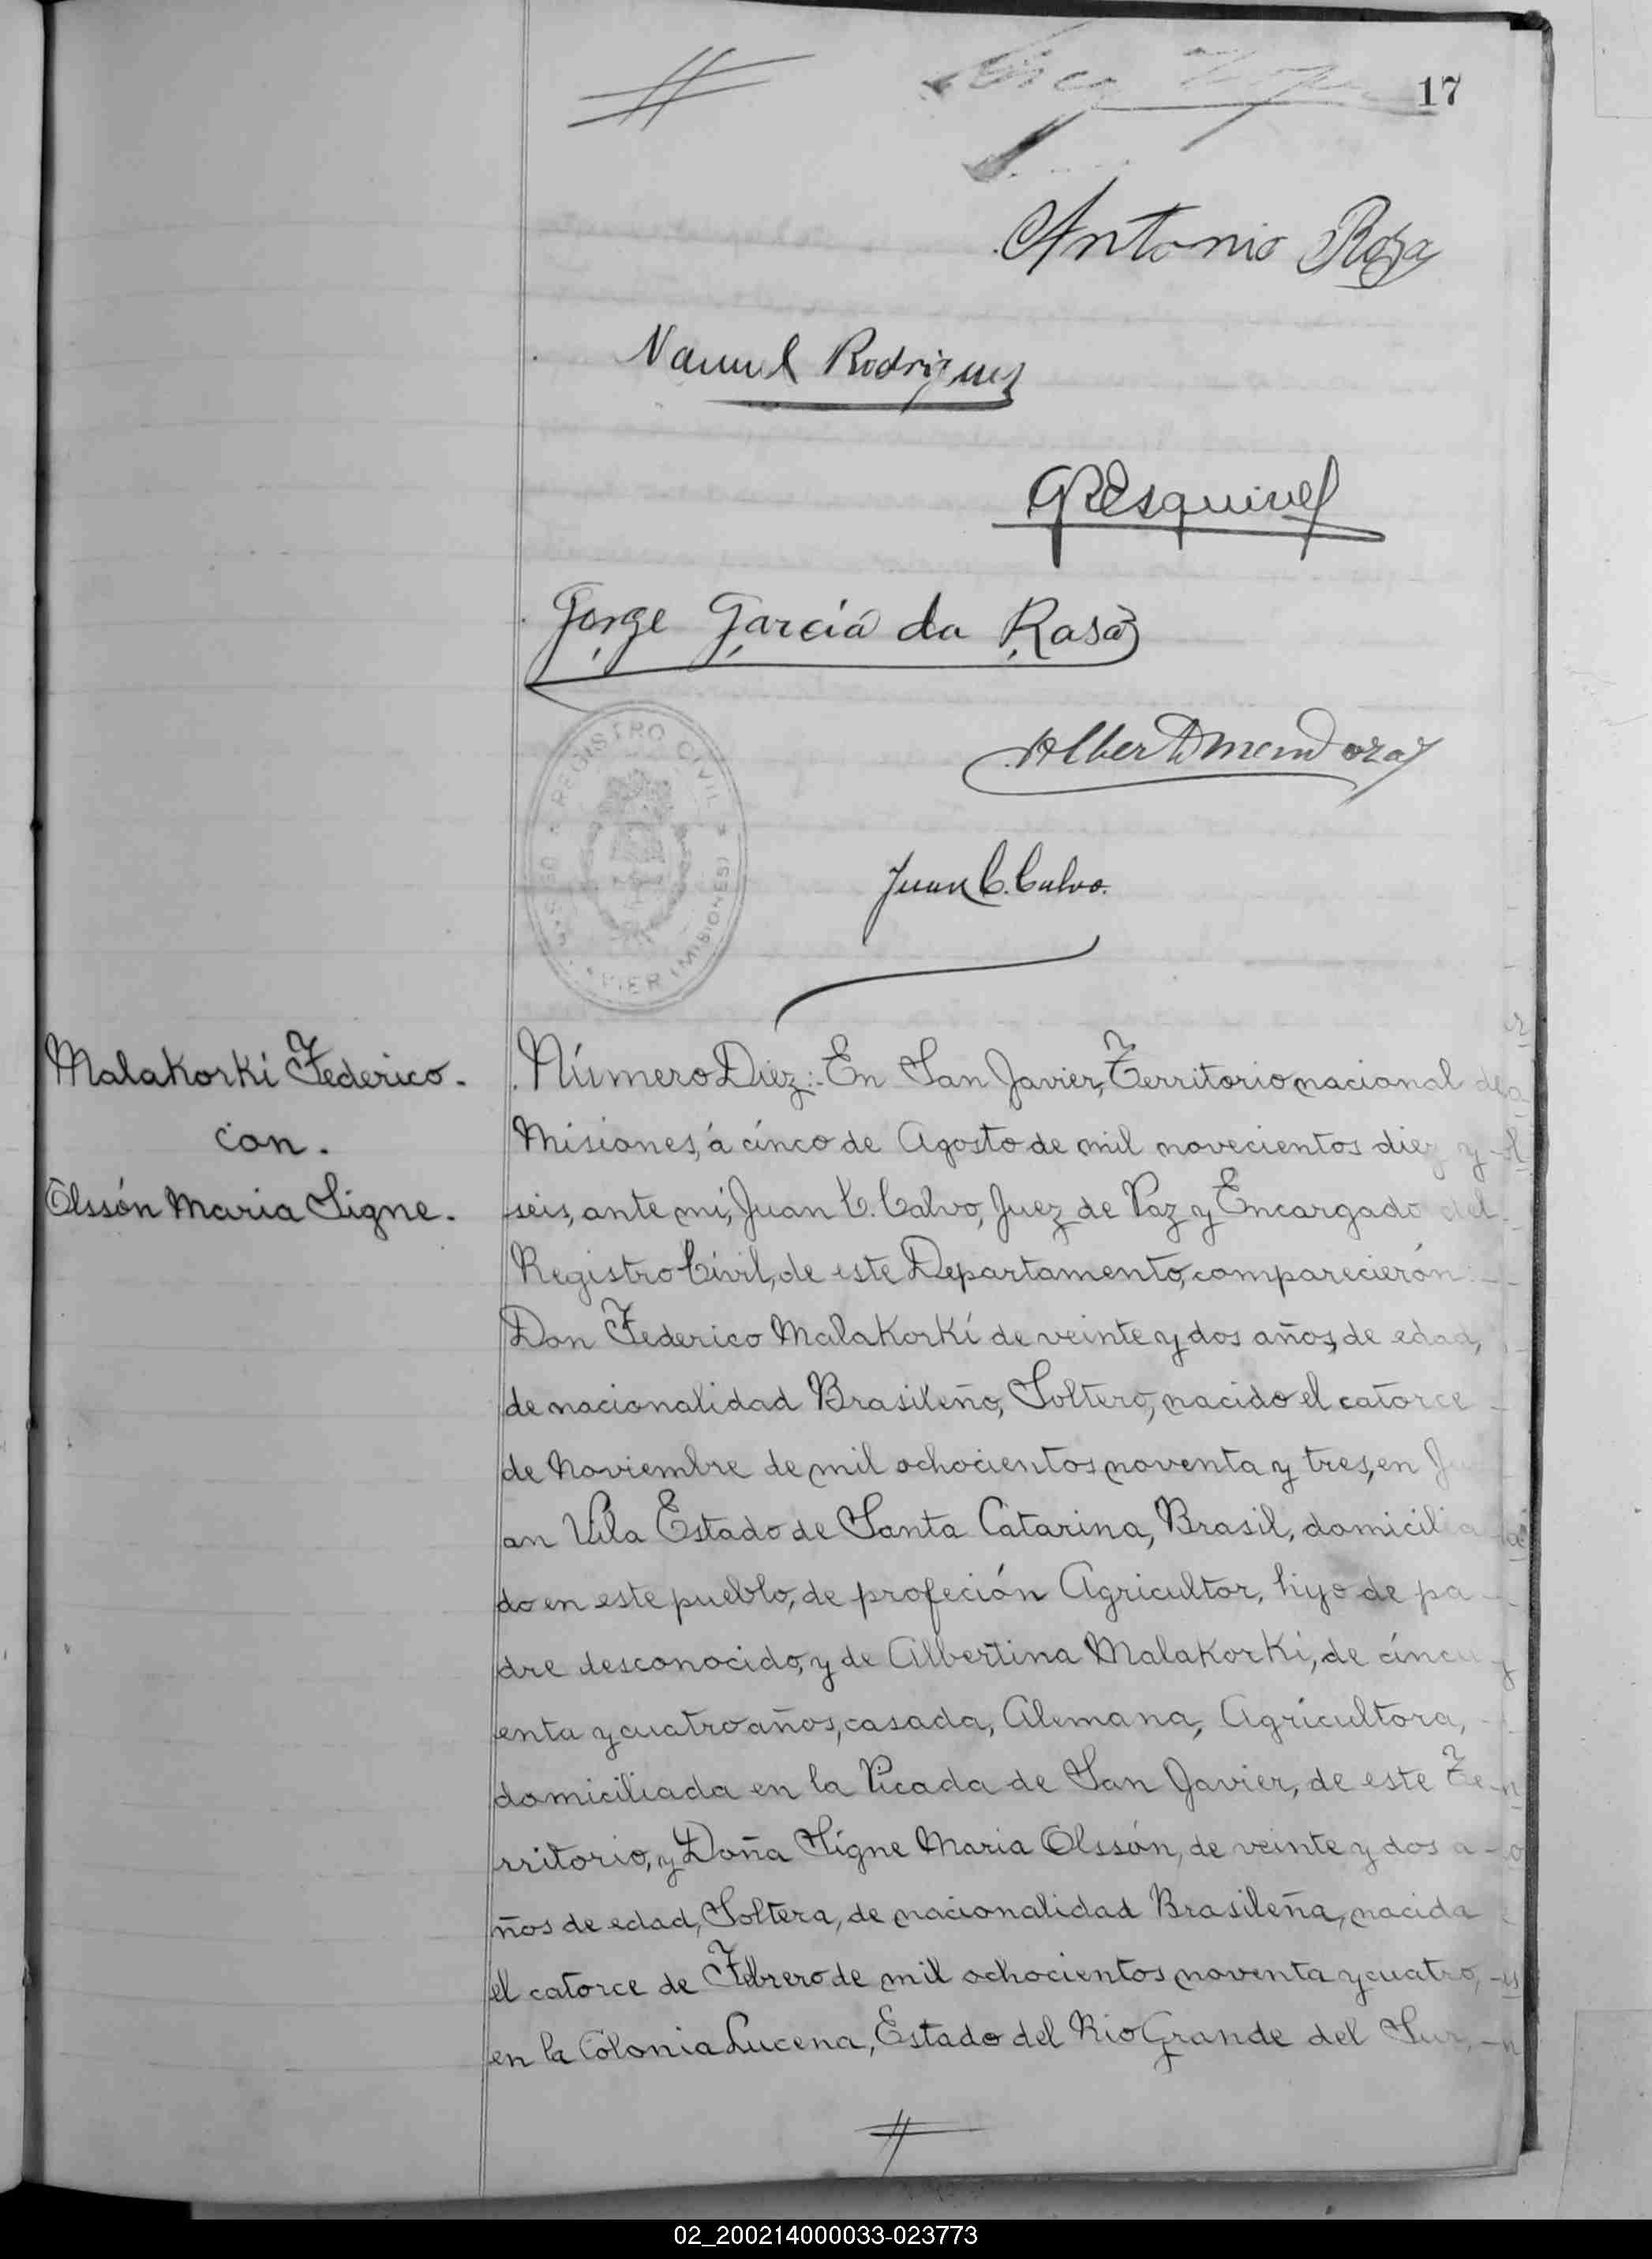 17
Antonio Roza
Manuel Rodriguez
G R Esquivel
Jorge García da Rasa
REGISTRO CIVIL
(MISIONES)
Alberto Mendoza
Juan C. Calvo.
Malakorki Federico.
con.
Olssón Maria Signe.
Número Diez:. En San Javier, Territorio nacional de
Misiones, á cinco de Agosto de mil novecientos diez y
seis, ante mi, Juan C. Calvo, Juez de Paz y Encargado del
Registro Civil, de este Departamento, comparecierón:
Don Federico Malakorkí de veinte y dos años, de edad,
de nacionalidad Brasileño, Soltero, nacido el catorce
de Noviembre de mil ochocientos noventa y tres, en Ju
an Vila Estado de Santa Catarina, Brasil, domicilia
do en este pueblo, de profeción Agricultor, hijo de pa
dre desconocido, y de Albertina Malakorki, de cincu
enta y cuatro años, casada, Alemana, Agricultora,
domiciliada en la Picada de San Javier, de este Te
rritorio, y Doña Signe Maria Olssón, de veinte y dos a
ños de edad, Soltera, de nacionalidad Brasileña, nacida
el catorce de Febrero de mil ochocientos noventa y cuatro,
en la Colonia Lucena, Estado del Rio Grande del Sur,
02_200214000033-023773